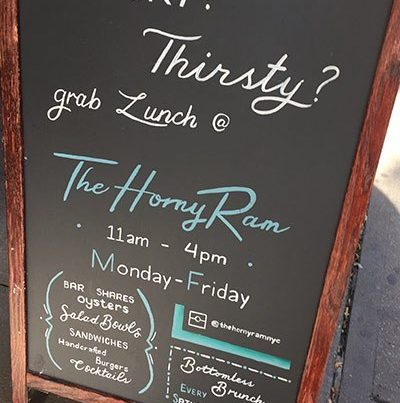 Thirsty?
grab Lunch @
The Horny Ram
11am - 4pm
Monday-Friday
BAR SHARES
oysters
Salad Bowls
SANDWICHES
Handcrafted
Burgers
Cocktails
@thehornyramnyc
Bottomless
Brunch
EVERY